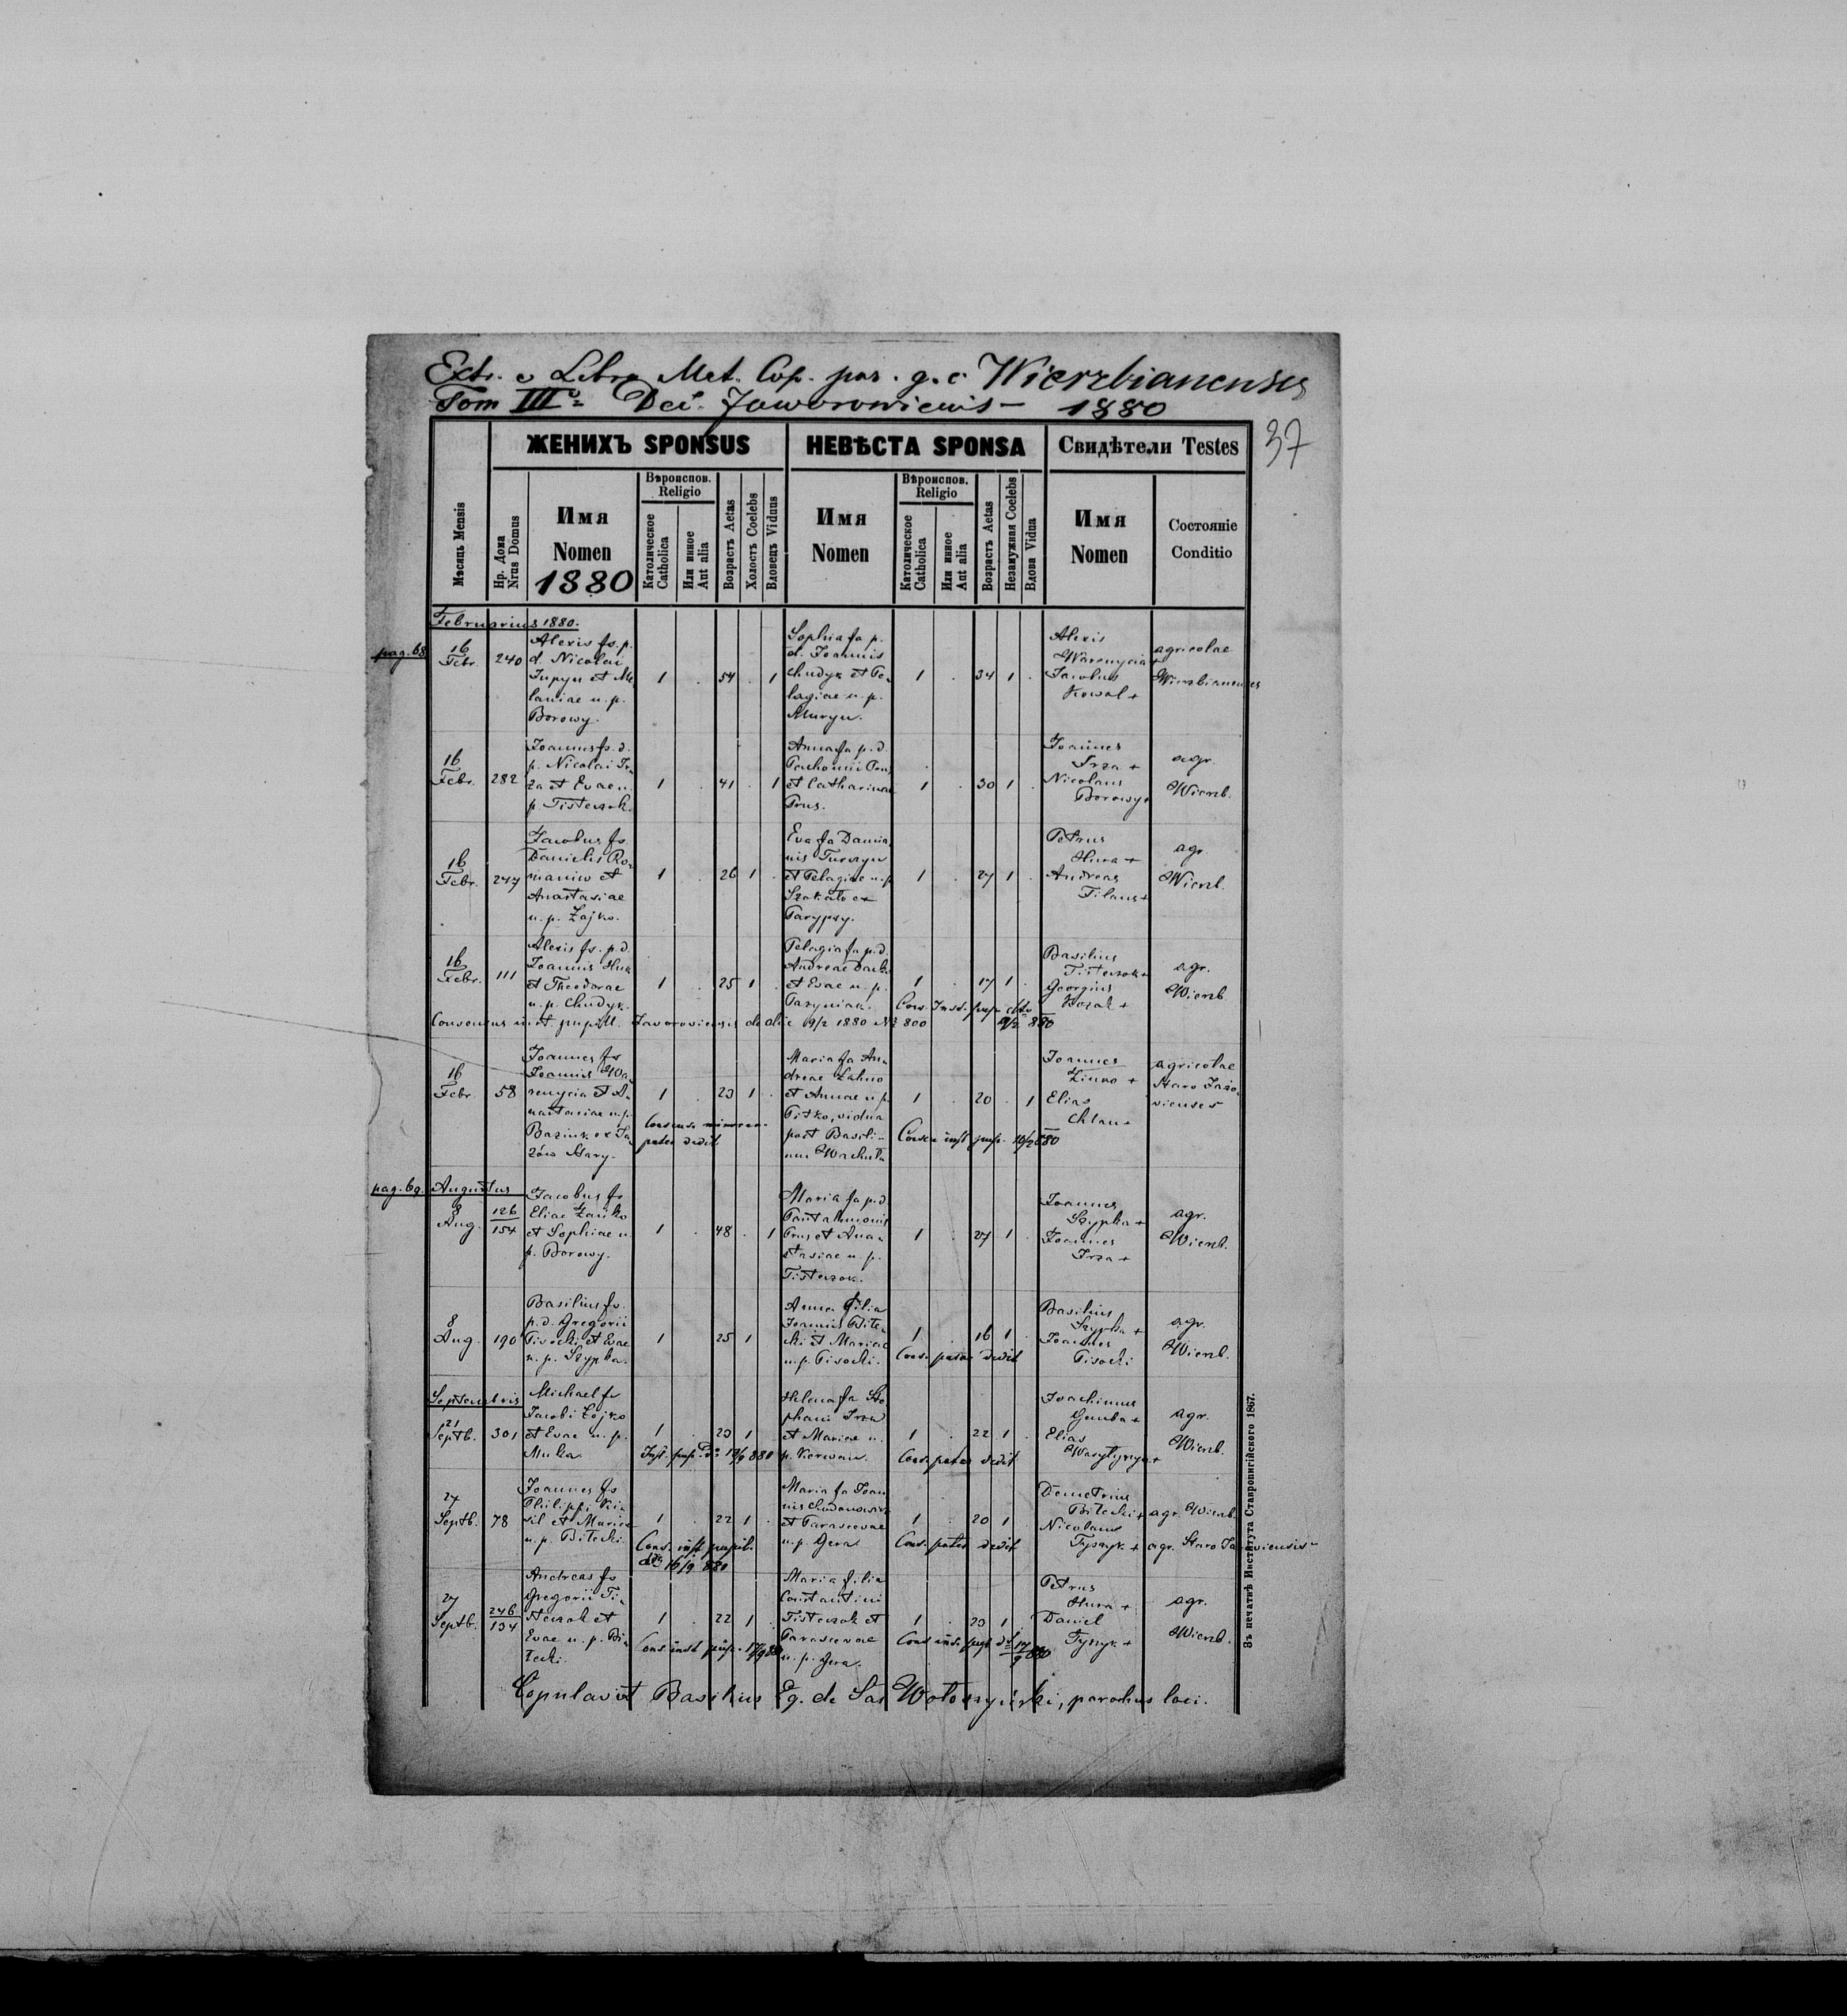 Extr. e Libro Met. Cop. par. g. c. Wierzbianensis
Tom III Dec. Jaworowiensis 1880
37
ЖЕНИХЪ SPONSUS
НЕВѢСТА SPONSA
Свидѣтели Testes
Мѣсяць Mensis
Нр. Дома
Nrus Domus
Имя
Nomen
1880
Вѣроиспов.
Religio
Католическое
Catholica
Или инное
Aut alia
Возрастъ Aetas
Холостъ Coelebs
Вдовецъ Viduus
Имя
Nomen
Вѣроиспов.
Religio
Католическое
Catholica
Или инное
Aut alia
Возрастъ Aetas
Незамужная Coelebs
Вдова Vidua
Имя
Nomen
Состояніе
Conditio
Februarius 1880.
pag. 68
16
Febr.
240
Alexis fs. p.
d. Nicolai
et Me
laniae n. p.
Borowy.
1 . 54 . 1
Sophia fa p.
d. Joannis
Chudyk et Pe
lagiae n. p.
Muryn.
1 . 34 1 .
Alexis
Warenycia
Jacobus
Kowal +
agricolae
Wierzbianenses
16
Febr.
282
Joannes fs. d.
p. Nicolai Ir
za et Evae n.
p. Tisteczok.
1 . 41 . 1
Anna fa p. d.
Pachomii Prus
et Catharinae
Prus.
1 . 30 1 .
Joannes
Irza +
Nicolaus
Borowy +
agr.
Wierzb.
16
Febr.
247
Jacobus fs
Danielis Ro
maniw et
Anastasiae
n. p. Zajko.
1 . 26 1 .
Eva fa Damia
nis
et Pelagiae n. p.
Szokalo ex
Parypsy.
1 . 27 1 .
Petrus
Hura +
Andreas
Tilaus +
agr.
Wierzb.
16
Febr.
111
Alexis fs. p. d.
Joannis Huk
et Theodorae
n. p. Chudyk.
1 . 25 1 .
Pelagia fa p. d.
Andreae
et Evae n. p.
Pazyniak.
1 . 17 1 .
Cons. Inst. pup. ddto
9/2 880
Basilius
Tisteczok +
Georgius
Kozak +
agr.
Wierzb
Consensus inst. pupill. Jaworoviensis de die 9/2 1880 N 800
16
Febr.
58
Joannes fs
Joannis Wa
renycia et A
nastasiae n. p.
Baziuk ex Ja
zów Stary.
1 . 23 1 .
Consens. minoren.
pater dedit
Maria fa An
dreae Lahno
et Annae n. p.
Pitko, vidua
post Basili
um
1 . 20 . 1
Consen inst pup. 10/2 880
Joannes
Zinko +
Elias
Chlan +
agricolae
Staro Jazo
vienses
pag. 69.
Augustus
8
Aug.
126
154
Jacobus fs
Eliae
et Sophiae n.
p. Borowy.
1 . 48 . 1
Maria fa p. d.
Pantalemonis
Prus et Ana
stasiae n. p.
Tisteczok.
1 . 27 1 .
Joannes
Szypka +
Joannes
Irza +
agr.
Wierzb.
8
Aug.
190
Basilius fs.
p. d. Gregorii
Pisocki et Evae
n. p. Szypka.
1 25 1
Anna filia
Joannis Bile
cki et Mariae
n. p. Pisocki.
1 . 16 1 .
Cons. pater dedit
Basilius
Szypka +
Joannes
Pisocki
agr.
Wierzb.
Septembris
21
Septb.
301
Michael fs
Jacobi Zajko
et Evae n. p.
Muka
1 . 23 1
Helena fa Ste
phani Irza
et Mariae n.
p.
1 . 22 1 .
Cons. pater dedit
Joachimus
Gemba +
Elias
agr.
Wierzb.
27
Septb.
78
Joannes fs
Philippi Ki
sil et Mariae
n. p. Bilecki.
1 . 22 1 .
Cons. inst pupil.
dd 16/9 880
Maria fa Joan
nis
et Parascevae
n. p. Gera
1 20 1
Cons. pater dedit
Demetrius
Bilecki +
Nicolaus
Tyszyk +
agr. Wierzb.
agr. Staro Jazoviensis
27
Septb.
246
134
Andreas fs
Gregorii Ti
steczok et
Evae n. p. Bi
lecki.
1 . 22 1 .
Cons inst pup. 17/9 880
Maria filia
Constantini
Tisteczok et
Parascevae
n. p. Gera.
1 . 23 1
Cons inst. pup dd 17/9 880
Petrus
Hura +
Daniel
Tyszyk +
agr.
Wierzb.
Copulavit Basilius Eq. de Sas Wołoszyński, parochus loci.
Зъ печатнѣ Института Ставропигійского 1867.